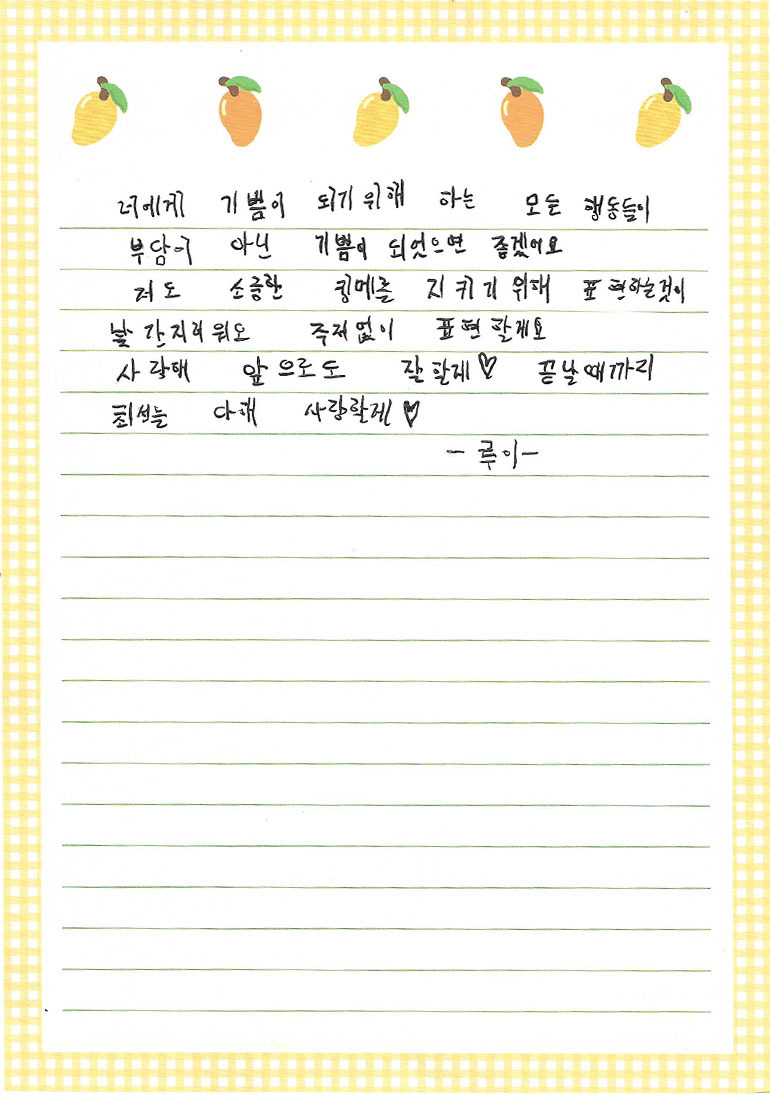 너에게 기쁨이 되기 위해 하는 모든 행동들이
부담이 아닌 기쁨이 되었으면 좋겠어요
저도 소중한 킹메를 지키기 위해 표현하는것이
낯간지러워도 주저없이 표현할게요
사랑해 앞으로도 잘할게♡ 끝날때까지
최선을 다해 사랑할게♡
- 루이 -